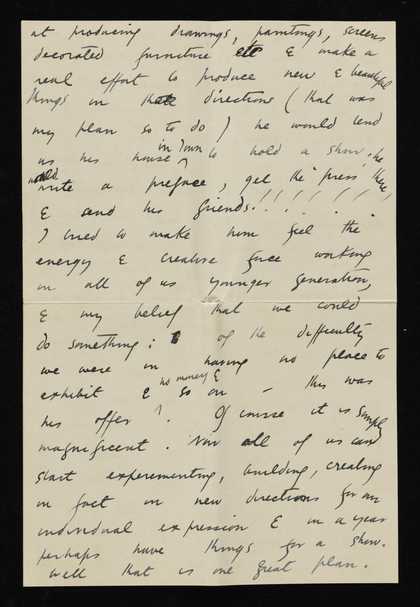 at producing drawings, paintings, screens
decorated furniture etc & make a
real effort to produce new & beautiful
things in that direction (that was
my plan so to do) he would lend
us his house in Town to hold a show. he
would write a preface, get the "press" there,
& send his friends!!.....
I tried to make him feel the
energy & creative force working
in all of us younger generation,
& my belief that we could
do something: & of the difficulty
we were in having no place to
exhibit & no money & so on – this was
his offer!. Of course it is simply
magnificent. Now all of us can
start experementing, building, creating
in fact in new directions for an
individual expression & in a year
perhaps have things for a show.
Well that is one great plan.